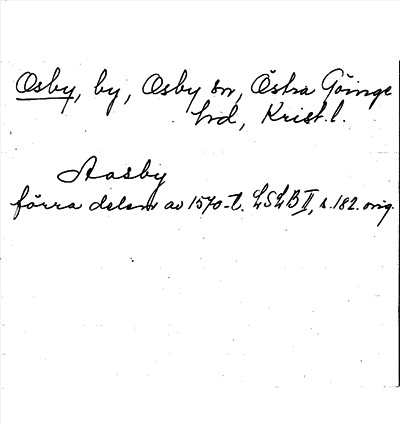 Osby, by, Osby sn, Östra Göinge
hd, Krist. l.
Aasby
förra delen av 1570-t. LSLB II, s. 182. orig.